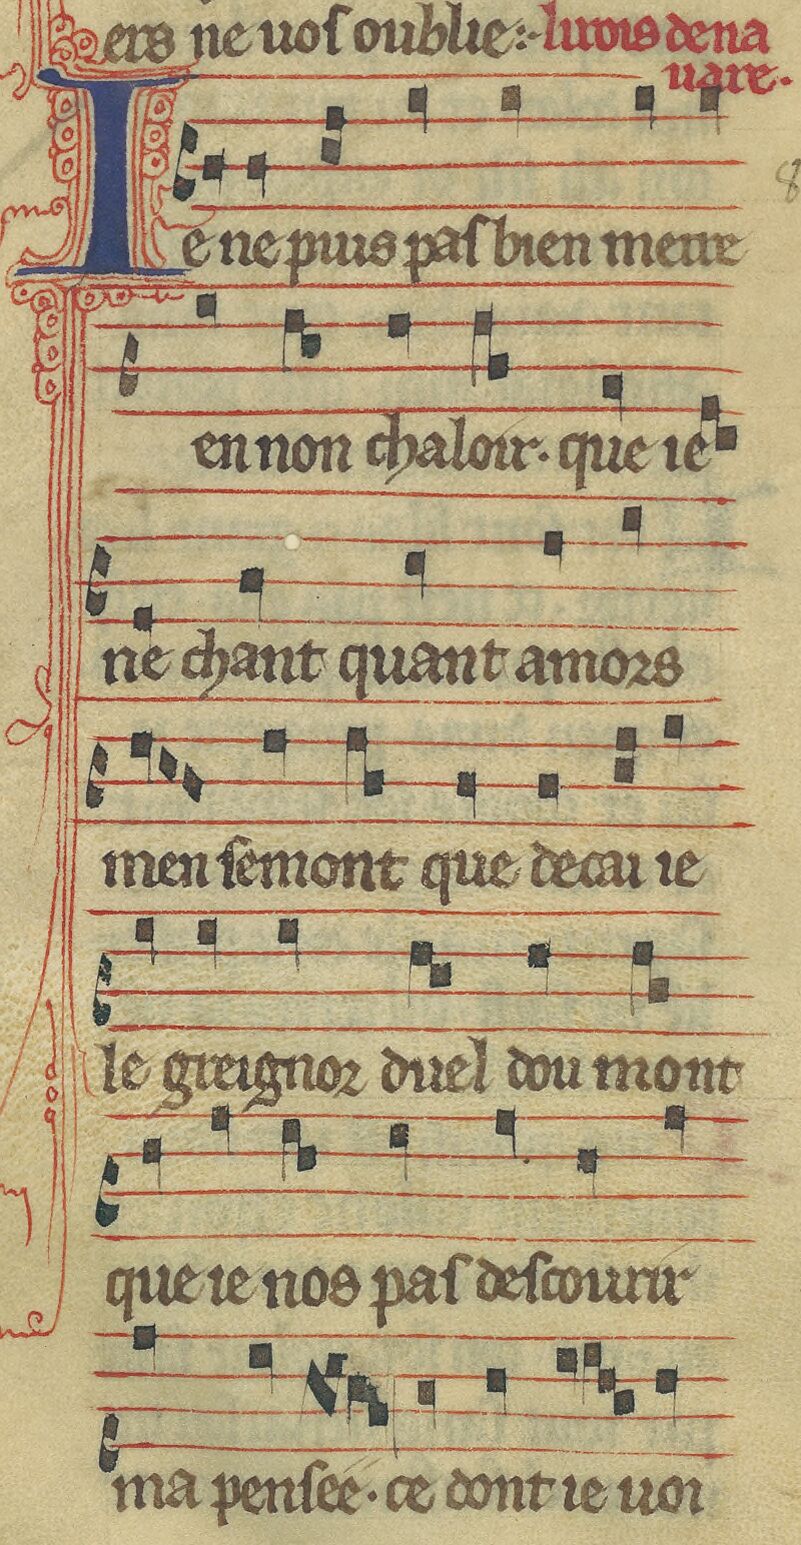 ers ne uos oublie :· li rois de na
uare .
Ie ne puis pas bien metre
en non chaloir . que ie
ne chant quant amors
men semont que de cau ie
le greignor duel dou mont
que ie nos pas descourir
ma pensee . ce dont ie uoi
8